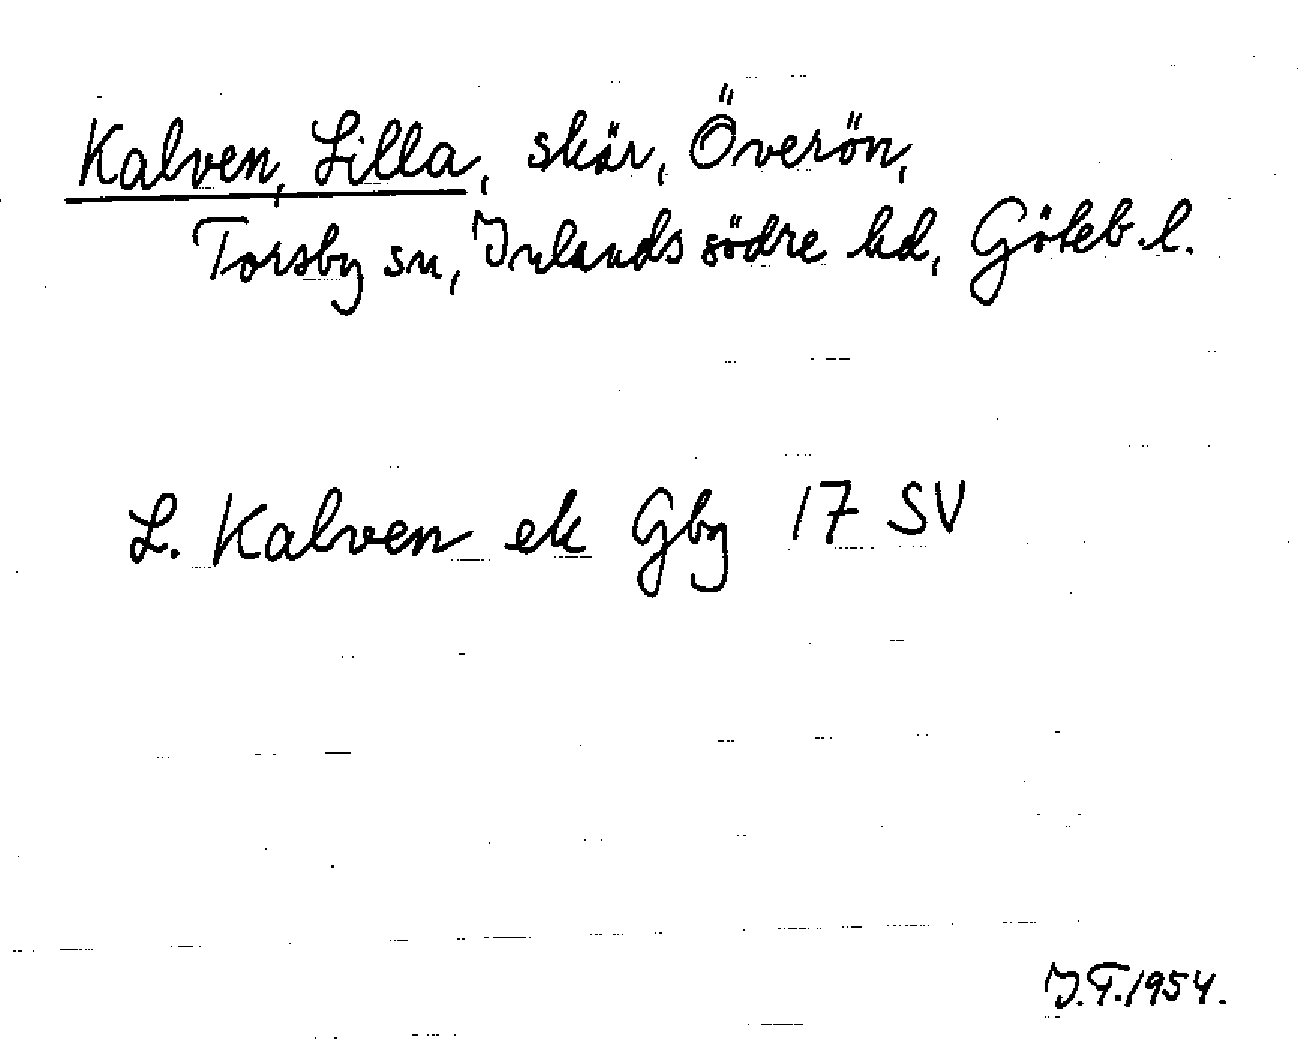 Kalven, Lilla, skär, Överön,
Torsby sn, Inlands södre hd, Göteb. l.
L. Kalven ek Gby 17 SV
I.T. 1954.